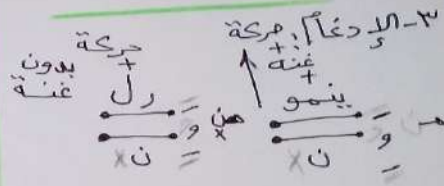 ٣- الإدغام: حركة
+
غنة
+
ينمو
من و
ن x
حركة
+
بدون
غنة
رل
من و
x
ن x